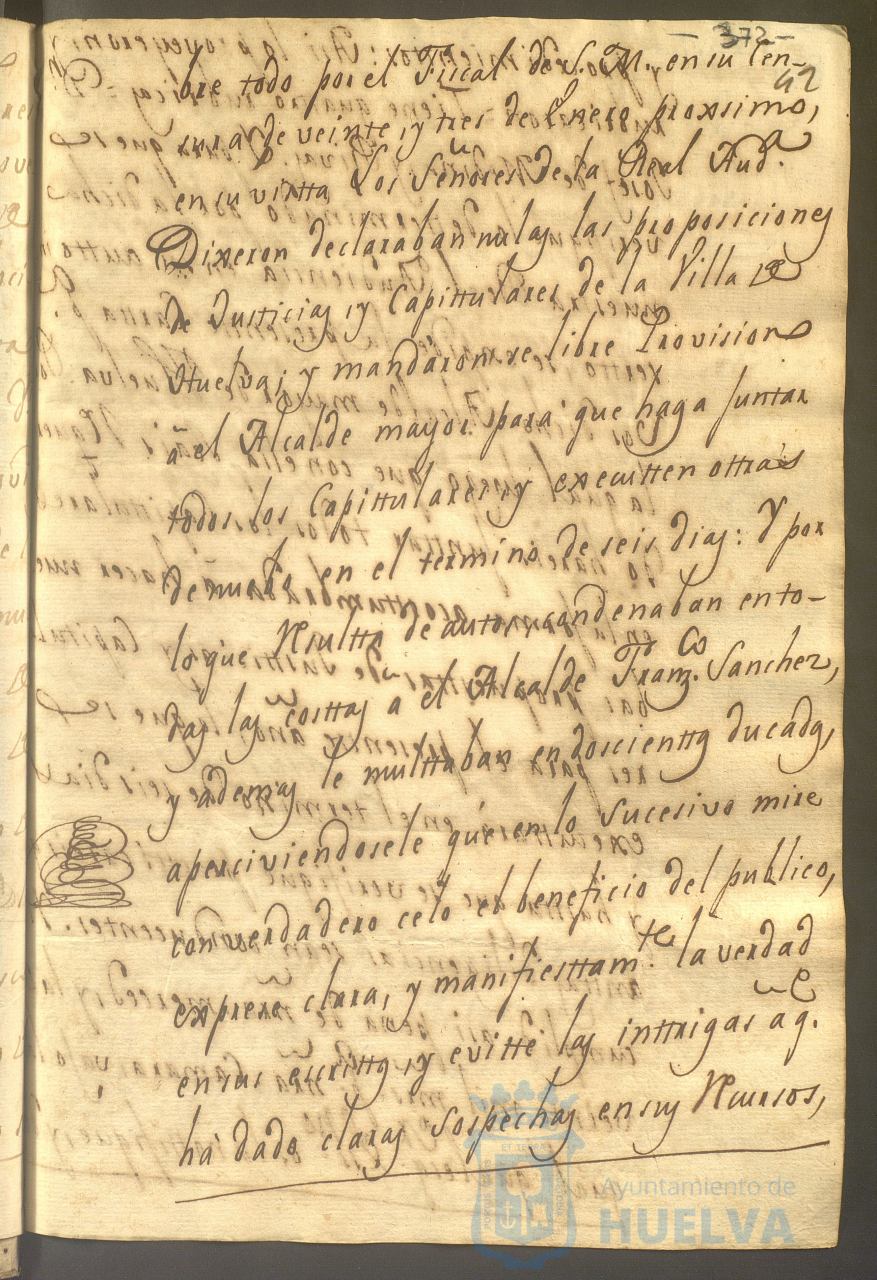 - 372 -
42
bre todo por el Fiscal de S. M. en su Cen-
sura de veinte, y tres de Enero proxsimo,
en su vistta Los Señores de la Real Aud.a
Dixeron declaraban nulas las proposiciones
de Justicias, y Capittulares de la Villa de
Huelva; y mandaron se libre Provision
a el Alcalde mayor para que haga juntar
todos los Capittulares, y executten ottras
de nuebo en el termino de seis dias: Y por
lo que Resultta de auttos, condenaban en to-
das las costtas a el Alcalde Franz.co Sanchez,
y ademas le multtaban en doscienttos ducados,
aperciviendosele que en lo sucesivo mire
con verdadero celo el beneficio del publico,
exprese clara, y manifiesttam.te la verdad
en sus escrittos, y evitte las inttrigas a q.e
ha dado claras Sospechas en sus Recursos,
Ayuntamiento de
HUELVA